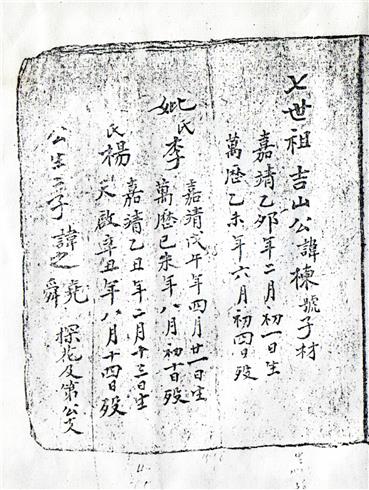 七世祖吉山公諱棟號子材
嘉靖乙夘年二月初一日生
萬歷乙未年六月初四日歿
妣氏李
嘉靖戊午年四月廿一日生
萬歷己未年八月初十日歿
氏楊
嘉靖乙丑年二月十三日生
天啟辛丑年八月十四日歿
公生二子諱之堯
舜
探花及第公文